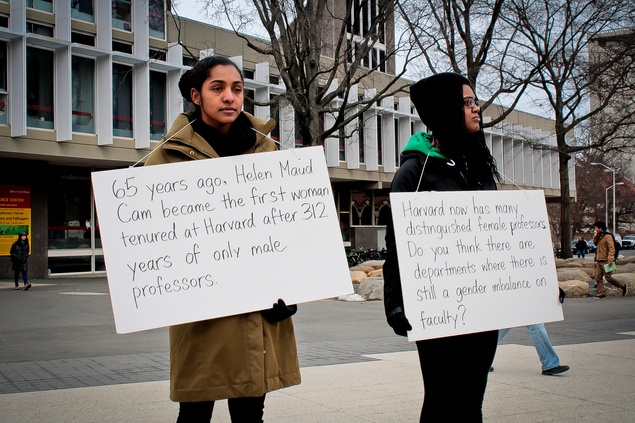 65 years ago, Helen Maud
Cam became the first woman
tenured at Harvard after 312
years of only male
professors.
Harvard now has many
distinguished female professors.
Do you think there are
departments where there is
still a gender imbalance on
faculty?